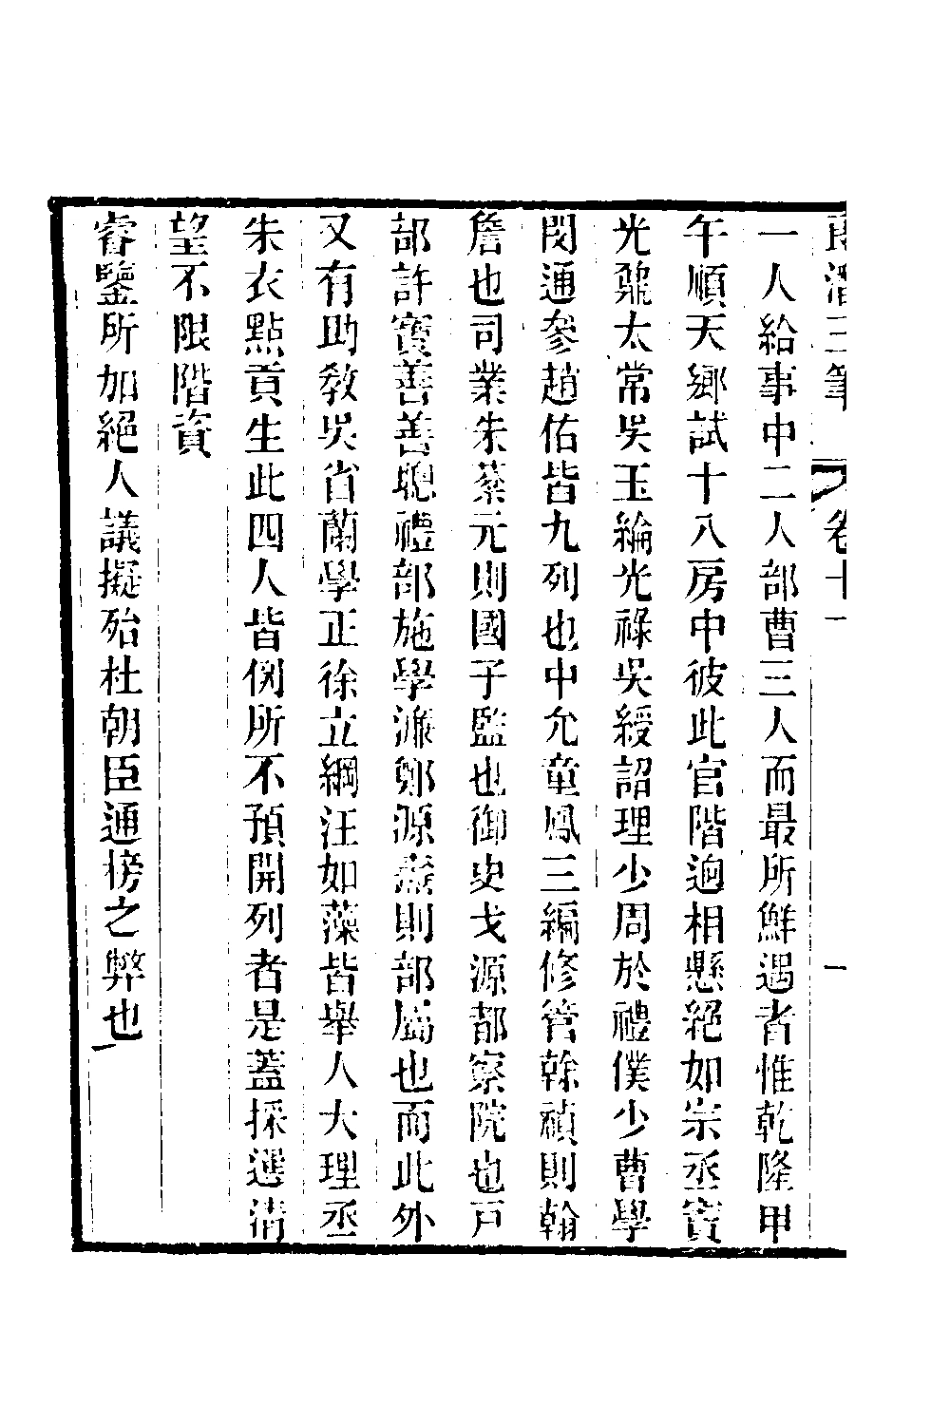 郎潛三筆 卷十一 一
一人給事中二人部曹三人而最所鮮遇者惟乾隆甲
午順天鄉試十八房中彼此官階逈相懸絕如宗丞竇
光鼐太常吳玉綸光祿吳綬詔理少周於禮僕少曹學
閔通參趙佑皆九列也中允童鳳三編修管榦禎則翰
詹也司業朱棻元則國子監也御史戈源都察院也戸
部許寶善善聰禮部施學濂鄭源燾則部屬也而此外
又有助敎吳省蘭學正徐立綱汪如藻皆舉人大理丞
朱衣點貢生此四人皆例所不預開列者是蓋採選清
望不限階資
睿鑒所加絕人議擬殆杜朝臣通榜之弊也